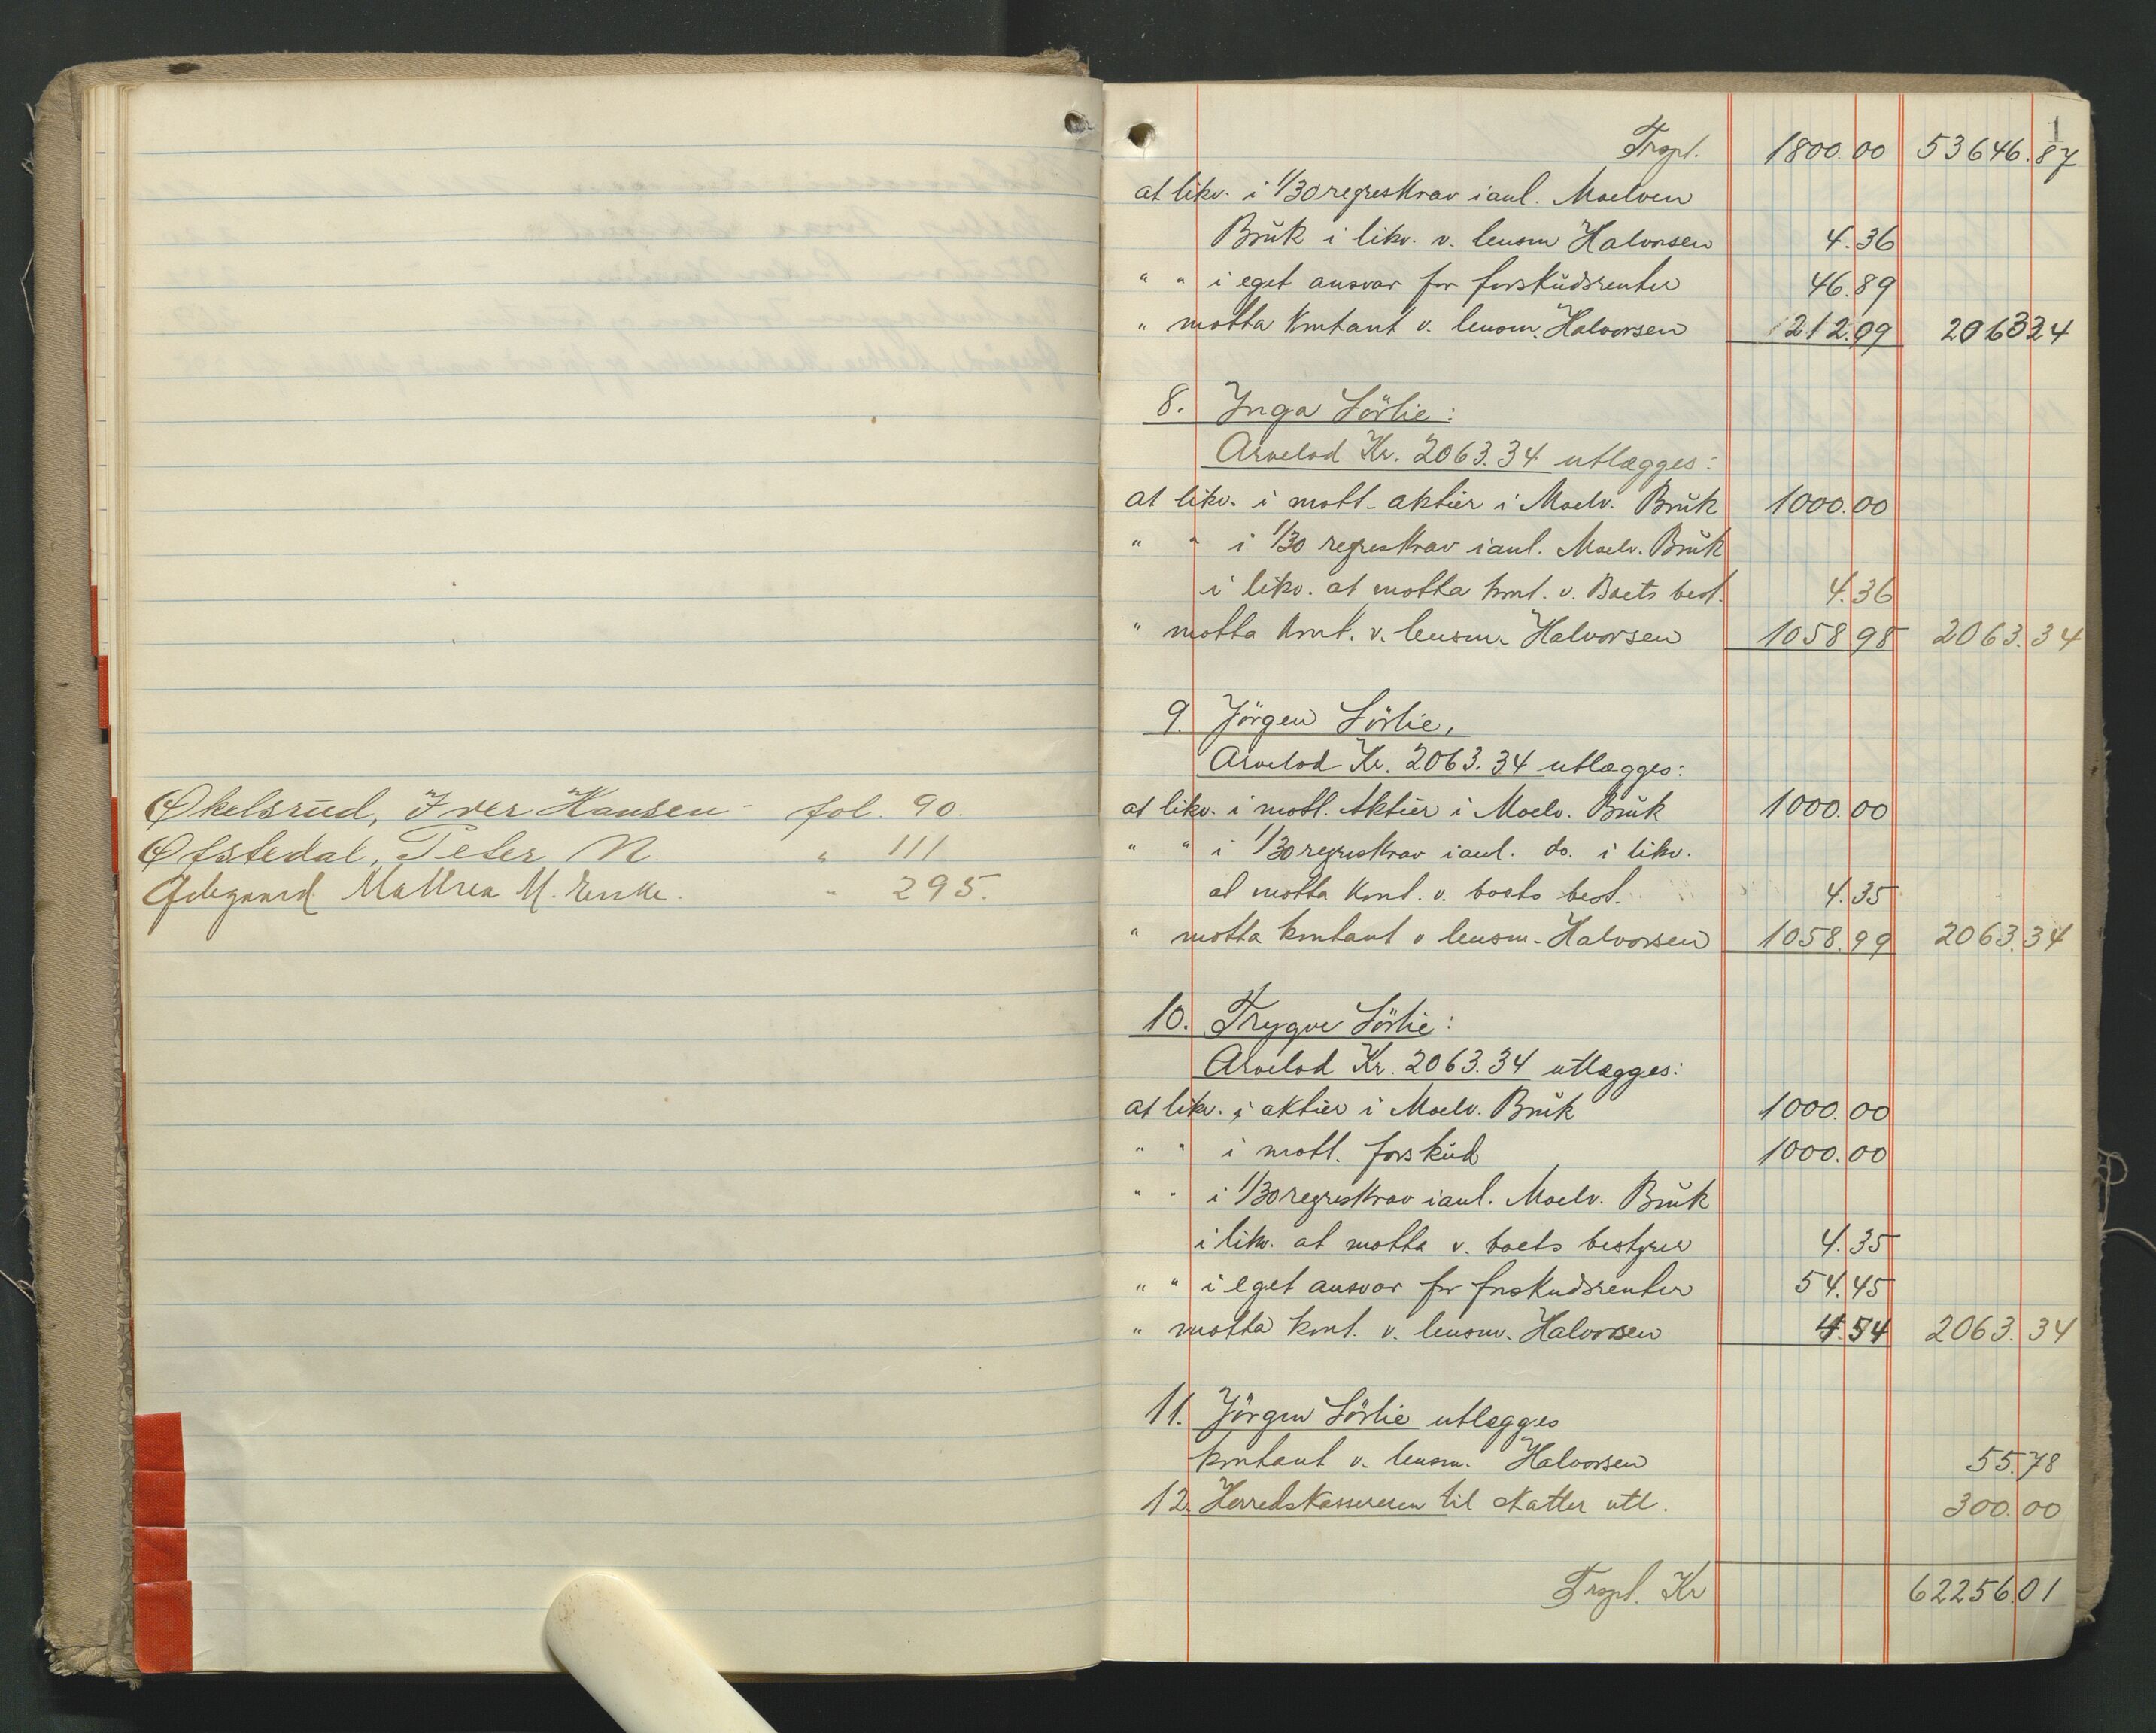 Økelsrud, Iver Hansen - fol. 90.
Øfstedal, Peter N. " 111
Ødegaard Mathea M. Enke. " 295.
1
Trspt. 1800.00 53646.87
at likv. i 1/30 regreskrav i anl. Moelven
Bruk i likv. v. lensm Halvorsen 4.36
" " i eget ansvar for forskudsrenter 46.89
" motta kontant v. lensm. Halvorsen 212.09 2063 34
8. Inga Sörlie:
Arvelod Kr. 2063.34 utlægges:
at likv. i mott. aktier i Moelv. Bruk 1000.00
" " i 1/30 regreskrav i anl. Moelv. Bruk
i likv. at motta kont. v. Boets best. 4.36
" motta kont. v. lensm. Halvorsen 1058.98 2063.34
9. Jörgen Sörlie,
Arvelod Kr. 2063.34 utlægges:
at likv. i mott. Aktier i Moelv. Bruk 1000.00
" " i 1/30 regreskrav i anl. do. i likv.
at motta kont. v. boets best. 4.35
" motta kontant v lensm. Halvorsen 1058.99 2063.34
10. Trygve Sörlie:
Arvelod Kr. 2063.34 utlægges:
at likv. i aktier i Moelv. Bruk 1000.00
" " i mott. forskud 1000.00
" " i 1/30 regreskrav i anl. Moelv. Bruk
i likv. at motta v. boets bestyrer 4.35
" " i eget ansvar for forskudsrenter 54.45
" motta kont. v. lensm. Halvorsen 4.54 2063.34
11. Jörgen Sörlie utlægges
kontant v. lensm. Halvorsen 55.78
12. Herredskassereren til skatter utl. 300.00
Trspt. Kr 62256.01